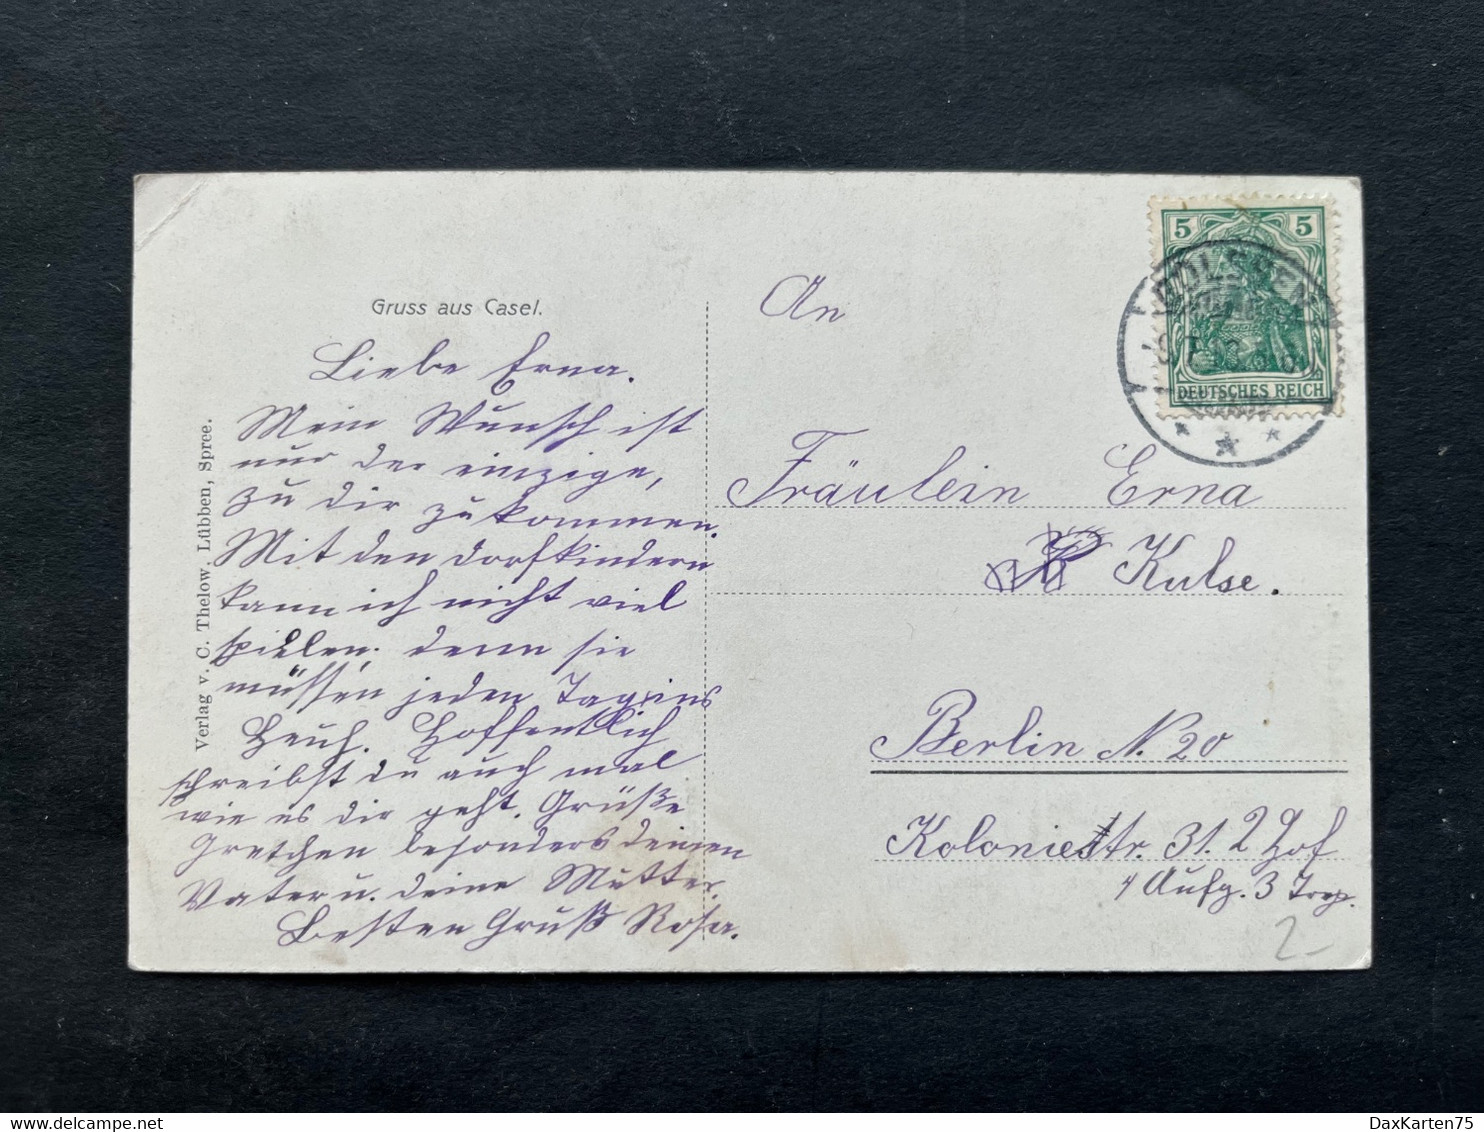 Gruss aus Casel.
Liebe Erna.
Mein Wunsch ist
nur der einzige,
zu dir zu kommen.
Mit den Dorfkindern
kann ich nicht viel
spielen. denn sie
müssen jeden Tag ins
Heuh. Hoffentlich
schreibst du auch mal
wie es dir geht. Grüße
Gretchen besonders deinen
Vater u. deine Mutter.
Besten Gruß Rosa.
Verlag v. C. Thelow, Lübben, Spree.
An
Fräulein Erna
Kulse.
Berlin N. 20
Koloniestr. 31. 2 Hof
Aufg. 3 Trp.
2
5 5
DEUTSCHES REICH
GOLSSEN
delcampe.net
DaxKarten75